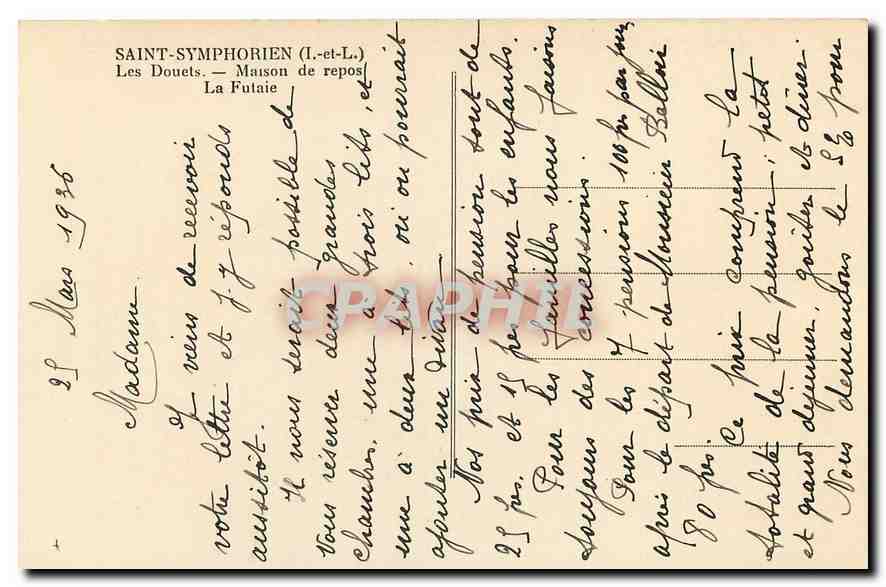 SAINT-SYMPHORIEN (I.-et-L.)
Les Douets. — Maison de repos
La Futaie
25 Mars 1936
Madame.
Je viens de recevoir
votre lettre et j'y réponds
aussitôt.
Il nous serait possible de
vous réserver deux grandes
chambres, une à trois lits, et
une à deux lits où on pourrait
ajouter un divan.
Nos prix de pension sont de
25 frs. et 15 frs pour les enfants.
Pour les familles nous faisons
toujours des concessions.
Pour les 7 pensions 100 frs par jour
après le départ de Monsieur Belloir
80 frs. Ce prix comprend la
totalité de la pension; petit
et grand déjeuner, goûter et dîner.
Nous demandons le pour
CPARPHIL